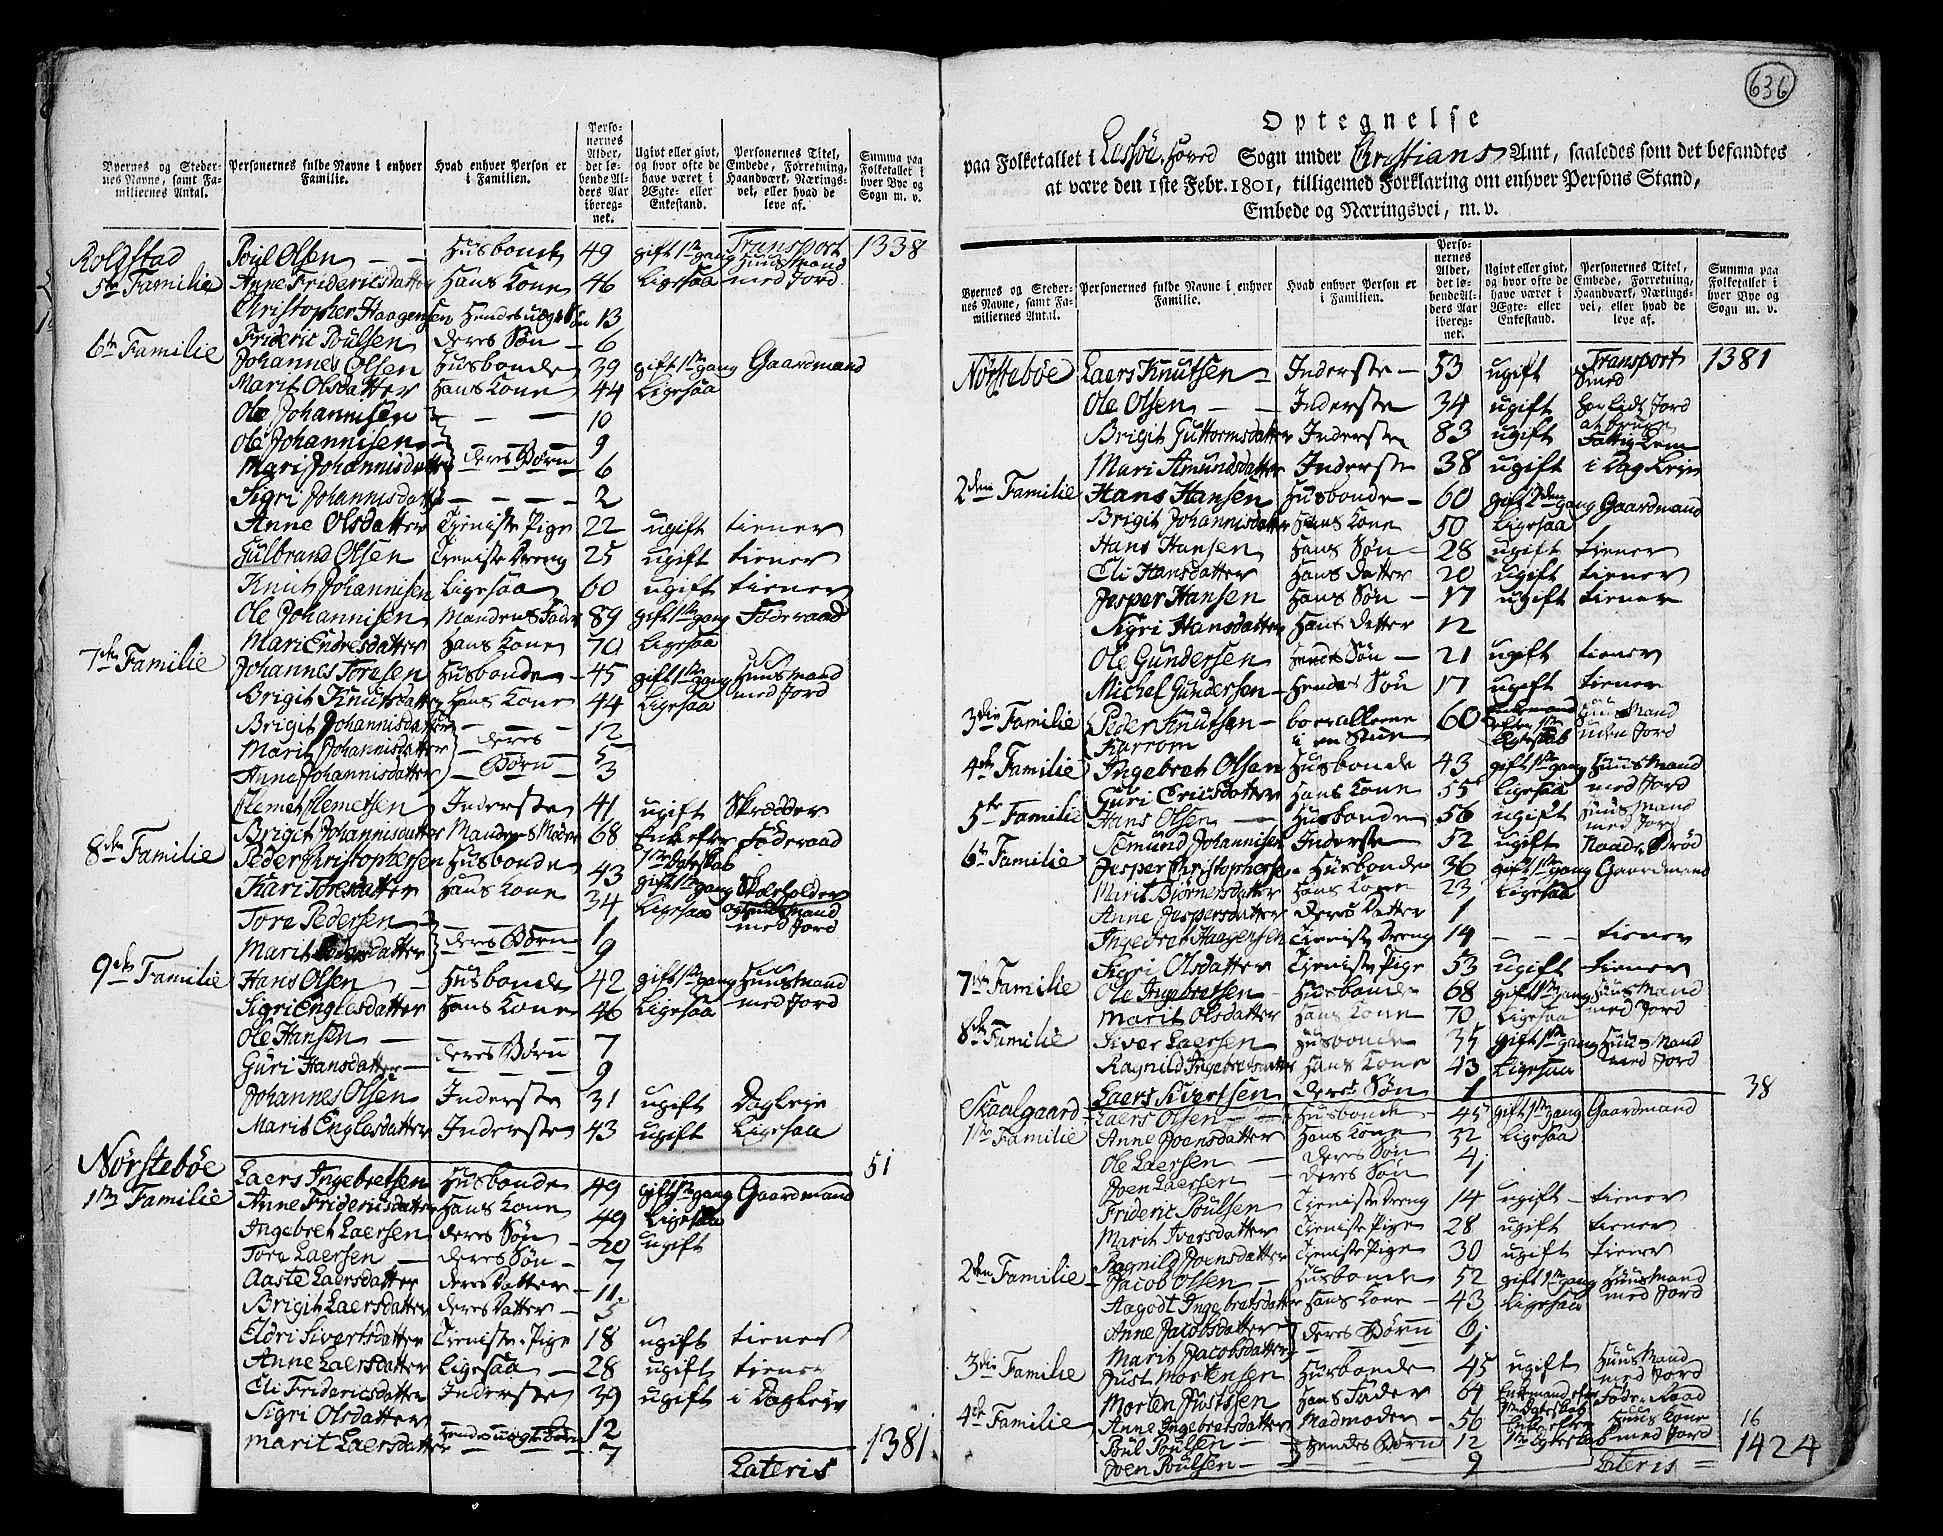 Byernes og Stedernes Navne, samt Familiernes Antal.
Personernes fulde Navne i enhver Familie.
Hvad enhver Person er i Familien.
Personernes Alder, det løbende Alders Aar iberegnet.
Ugivt eller givt, og hvor ofte de have været i Ægte- eller Enkestand.
Personernes Titel, Embede, Forretning, Haandværk, Næringsvei, eller hvad de leve af.
Summa paa Folketallet i hver Bye og Sogn m. v.
Transport 1338
Rolgstad Poul Olsen Husbonde 49 gift 1te gang Huusmand
5te Familie Anne Fridericsdatter Hans Kone 46 Ligesaa med Jord
Christopher Haagensen Hendes uægte Søn 13
Frideric Poulsen deres Søn 6
6te Familie Johannes Olsen Husbonde 39 gift 1te gang Gaardmand
Marit Olsdatter Hans Kone 44 Ligesaa
Ole Johannisen 10
Ole Johannisen 9
Mari Johannisdatter deres Børn 6
Sigri Johannisdatt 2
Anne Olsdatter Tieniste Pige 22 ugift tiener
Gulbrand Olsen Tieniste Dreng 25 ugift tiener
Knut Johannisen Ligesaa 60 ugift tiener
Ole Johannisen Mandens Fader 89 gift 1te gang Føderaad
Mari Endresdatter Hans Kone 70 Ligesaa
7de Familie Johannes Toresen Husbonde 45 gift 1te gang Huusmand
Brigit Knutsdatter Hans Kone 44 Ligesaa med Jord
Brigit Johannisdatter 12
Marit Johannisdatter deres 5
Anne Johannisdatter Børn 3
Clemet Clemetsen Inderste 41 ugift Skrædder
Brigit Johannisdatter Mandens Moder 68 Enke efter Føderaad
1te Ægteskab
8de Familie Peder Christophersen Husbonde 43 gift 1te gang Skoleholder
Kari Toresdatter Hans Kone 34 Ligesaa og Huusmand
Tore Pedersen 1 med Jord
Marit datter deres Børn 9
9de Familie Hans Olsen Husbonde 42 gift 1te gang Huusmand
Sigri Englesdatter Hans Kone 46 Ligesaa med Jord
Ole Hansen 7
Guri Hansdatter deres Børn 9
Johannes Olsen Inderste 31 ugift Dagleje
Marit Englesdatter Inderste 43 ugift Ligesaa
51
Nørstebøe Laers Ingebretsen Husbonde 49 gift 1te gang Gaardmand
1te Familie Anne Fridericsdatter Hans Kone 49 Ligesaa
Ingebret Laersen deres Søn 20 ugift
Tore Laersen deres Søn 7
Aaste Laersdatter deres Datter 11
Brigit Laersdatter deres Datter 5
Eldri Sivertsdatter Tieniste Pige 18 ugift tiener
Anne Laersdatter Ligesaa 28 ugift tiener
Eli Fridericsdatter Inderste 39 ugift i Dagleje
Sigri Olsdatter 12
Marit Laersdatter Hendes uægte Børn 7
Lateris 1381
636
Optegnelse
paa Folketallet i Lessøe hoved Sogn under Christians Amt, saaledes som det befandtes
at være den 1ste Febr. 1801, tilligemed Forklaring om enhver Persons Stand,
Embede og Næringsvei, m. v.
Byernes og Stedernes Navne, samt Familiernes Antal.
Personernes fulde Navne i enhver Familie.
Hvad enhver Person er i Familien.
Personernes Alder, det løbende Alders Aar iberegnet.
Ugivt eller givt, og hvor ofte de have været i Ægte- eller Enkestand.
Personernes Titel, Embede, Forretning, Haandværk, Næringsvei, eller hvad de leve af.
Summa paa Folketallet i hver Bye og Sogn m. v.
Transport 1381
Nørstebøe Laers Knutsen Inderste 53 ugift Smed
Ole Olsen Inderste 34 ugift har lidt Jord at bruge
Brigit Guttormsdatter Inderste 83 ugift Fattig Lem
Mari Amundsdatter Inderste 38 ugift i Dagleje
2den Familie Hans Hansen Husbonde 60 gift 2den gang Gaardmand
Brigit Johannisdatter Hans Kone 50 Ligesaa
Hans Hansen Hans Søn 28 ugift tiener
Eli Hansdatter Hans Datter 20 ugift tiener
Jesper Hansen Hans Søn 17 ugift tiener
Sigri Hansdatter Hans Datter 12
Ole Gundersen Hendes Søn 21 ugift tiener
Michel Gundersen Hendes Søn 17 ugift tiener
3die Familie Peder Knutsen boer allene 60 Enkemand efter 1te Ægteskab Huus Mand
Karrom i en Stue uden Jord
4de Familie Ingebret Olsen Husbonde 43 gift 1te gang Huusmand
Guri Ericsdatter Hans Kone 55 Ligesaa med Jord
5te Familie Hans Olsen Husbonde 56 ugift Huus Mand med Jord
Semund Johannisen Inderste 52 ugift Naade Brød
6te Familie Jesper Christophersen Husbonde 36 gift 1te gang Gaardmand
Marit Bjørnersdatter Hans Kone 23 Ligesaa
Anne Jespersdatter deres Datter 1
Ingebret Haagensen Tieniste Dreng 14 tiener
Sigri Olsdatter Tieniste Pige 53 ugift tiener
7de Familie Ole Ingebretsen Husbonde 68 gift 1te gang Huus Mand
Marit Olsdatter Hans Kone 70 Ligesaa med Jord
8de Familie Siver Laersen Husbonde 35 gift 1te gang Huus Mand
Ragnild Ingebretsdatter Hans Kone 43 Ligesaa med Jord
Laers Sivertsen deres Søn 1
38
Skaalgaard Laers Olsen Husbonde 45 gift 1te gang Gaardmand
1te Familie Anne Joensdatter Hans Kone 32 Ligesaa
Ole Laersen deres Søn 4
Joen Laersen deres Søn 1
Frideric Poulsen Tieniste Dreng 14 ugift tiener
Marit Iversdatter Tieniste Pige 28 ugift tiener
Ragnild Joensdatter Tieniste Pige 30 ugift tiener
2den Familie Jacob Olsen Husbonde 52 gift 1te gang Huus Mand
Aagodt Ingebretsdatter Hans Kone 43 Ligesaa med Jord
Anne Jacobsdatter deres Børn 6
Marit Jacobsdatter 1
3die Familie Just Mortensen Husbonde 45 ugift Huus Mand med Jord
Morten Justsen Hans Fader 64 Enkemand efter 1te Ægteskab Føde Raad
4de Familie Anne Ingebretsdatter Madmoder 56 Enke efter 1te Ægteskab Huus Kone med Jord
16
Poul Poulsen Hendes Børn 12
Joen Poulsen 9
Lateris 1424